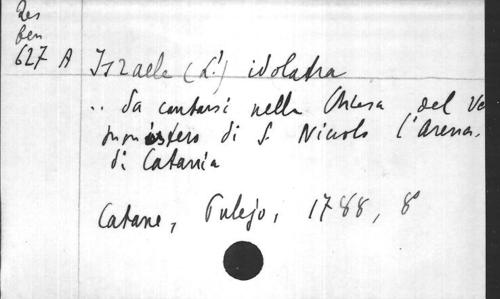 Res
Gen
627 A
Israele (L'.) idolatra
.. da cantarsi nella Chiesa del Ve
di S. Nicolo l'Arena
di Catania
Catane, Pulejo, 1788, 8°